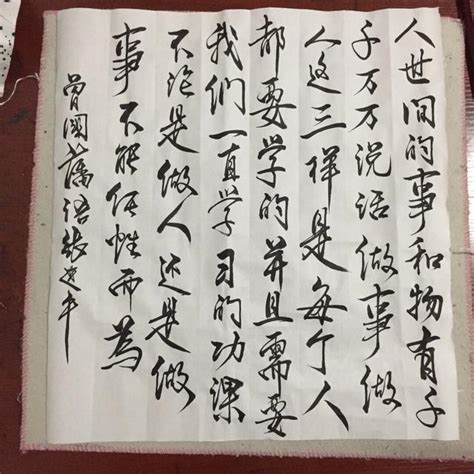 人世间的事和物有千
千万万说话做事做
人这三样是每个人
都要学的并且需要
我们一直学习的功课
不论是做人还是做
事不能任性而为
曾国藩语张建平